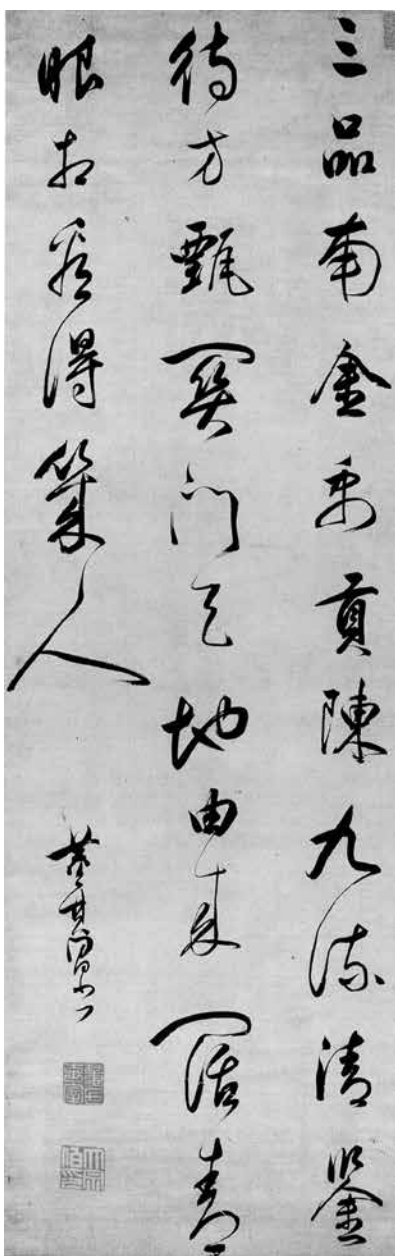 三品南金禹貢陳九流清鑒
待方甄門天地由來闊青
眼相看得幾人
董其昌